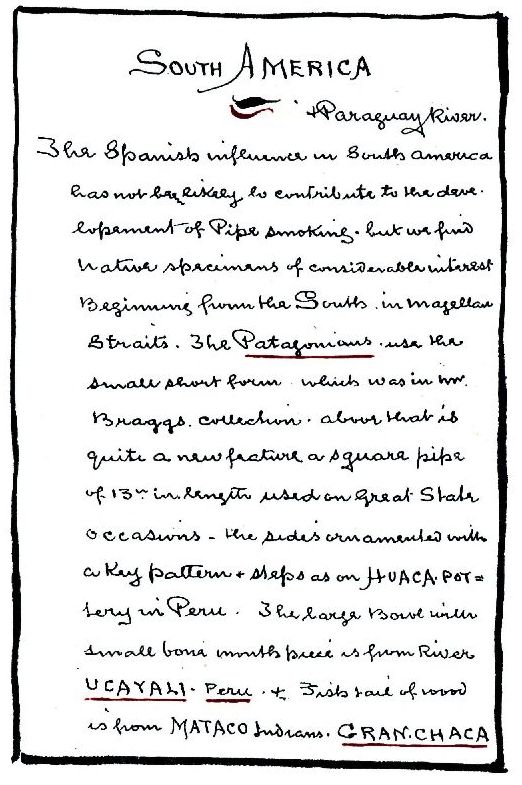 SOUTH AMERICA
+ Paraguay River.
The Spanish influence in South America
has not been likely to contribute to the deve-
lopement of Pipe smoking. but we find
native specimens of considerable interest
Beginning from the South. in Magellan
Straits. The Patagonians. use the
small short form. which was in Mr.
Braggs. collection. above that is
quite a new feature a square pipe
of 13 in. length used on Great State
occasions - the sides ornamented with
a Key pattern + steps as on HUACA. POT=
tery in Peru. The large Bowl with
small bone mouth piece is from River
UCAYALI. Peru. + Fish tail of wood
is from MATACO Indians. GRAN. CHACA